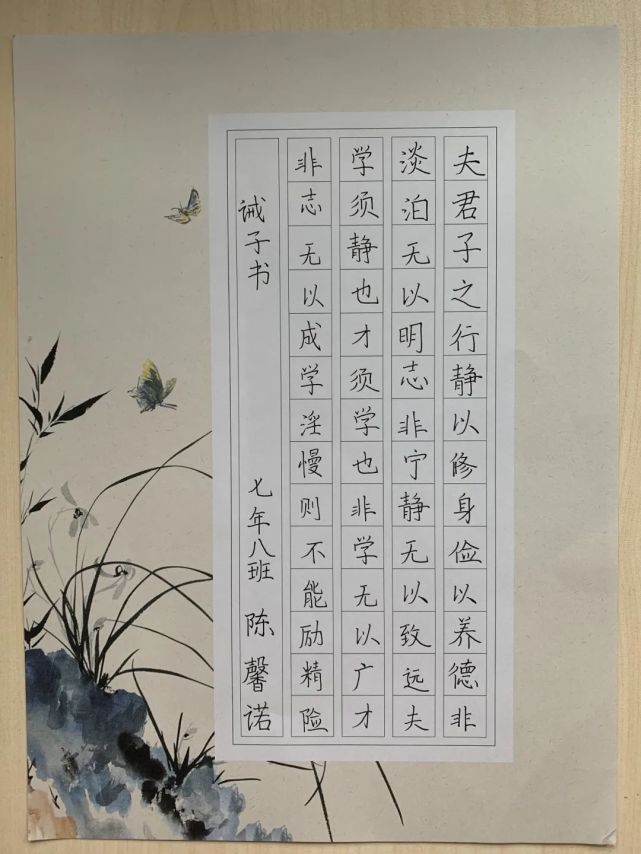 夫君子之行静以修身俭以养德非
淡泊无以明志非宁静无以致远夫
学须静也才须学也非学无以广才
非志无以成学淫慢则不能励精险
诫子书 七年八班 陈馨诺